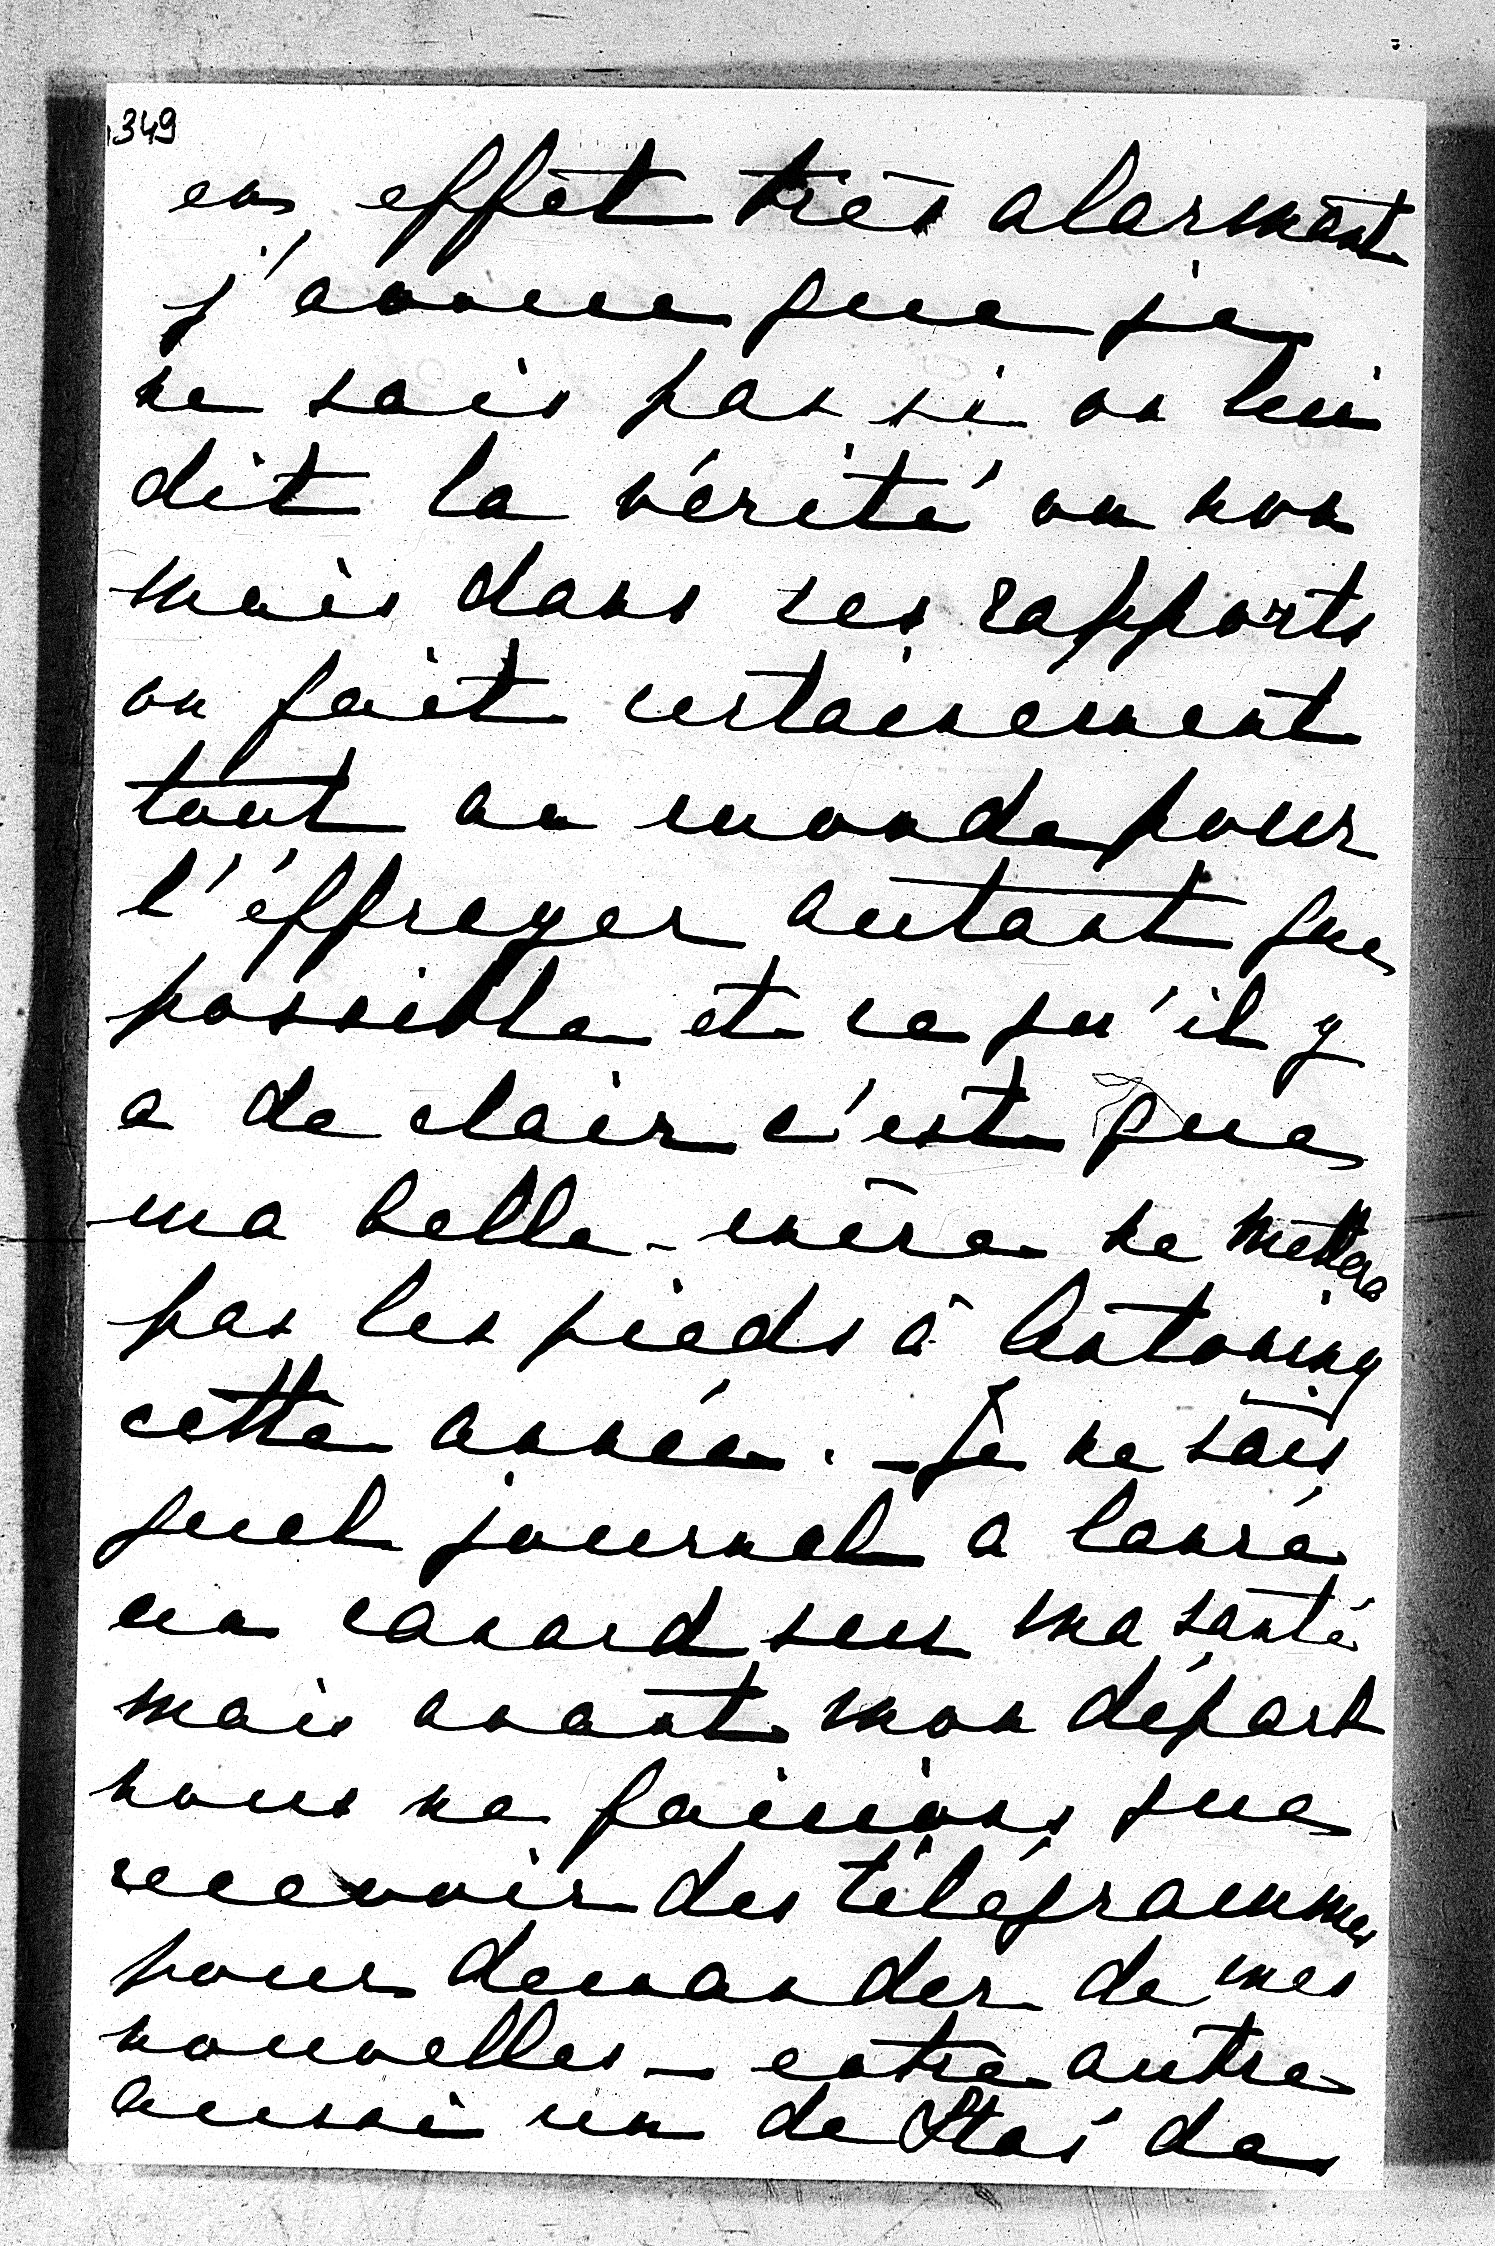 349
en effet très alarmant
j'avoue que je
ne sais pas si on lui
dit la vérité ou non
mais dans ses rapports
on fait certainement
tout au monde pour
l'éffrayer autant que
possible et ce qu'il y
a de clair c'est que
ma belle-mère ne mettera
pas les pieds à Antoniny
cette année. – Je ne sais
quel journal a lancé
un canard sur ma santé
mais avant mon départ
nous ne faisions que
recevoir des télégrammes
pour demander de mes
nouvelles – entre autre
aussi un de Staś de